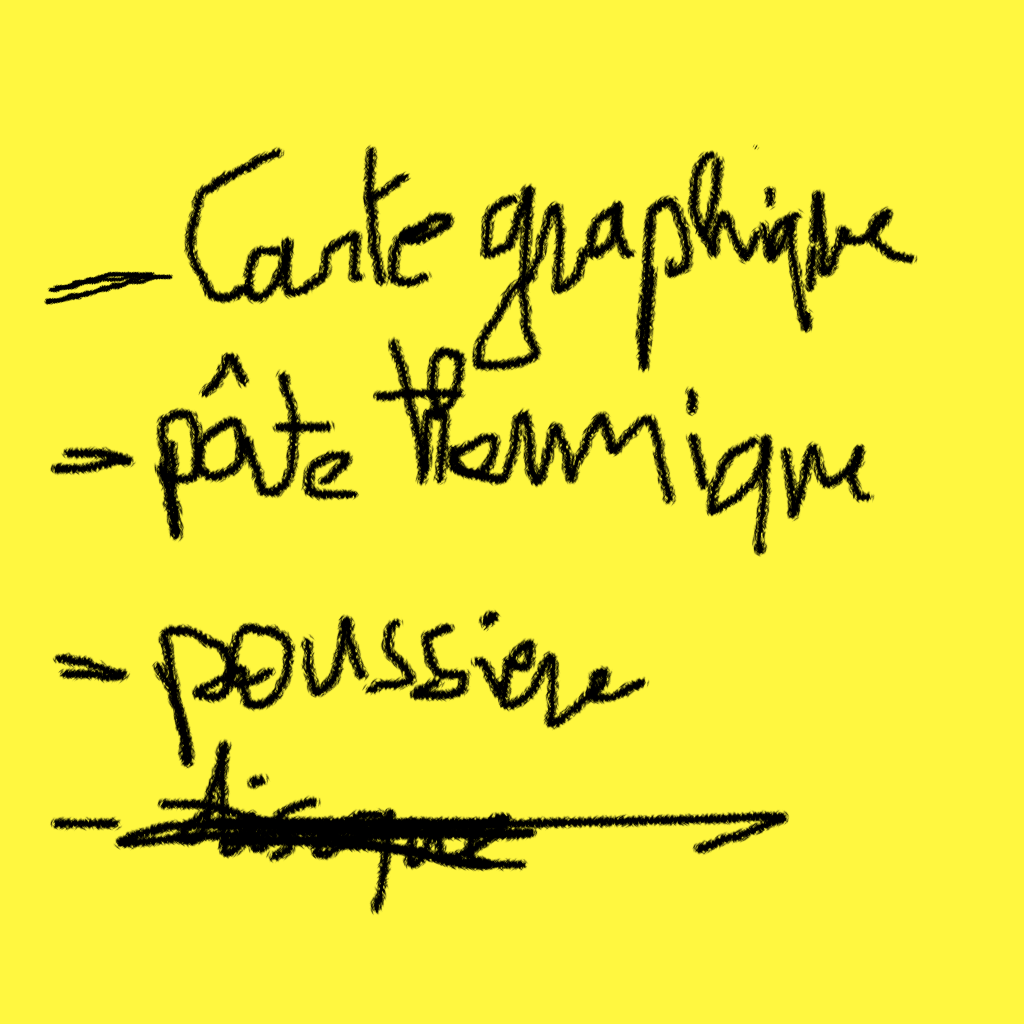 - Carte graphique
- pâte thermique
- poussière
- disque